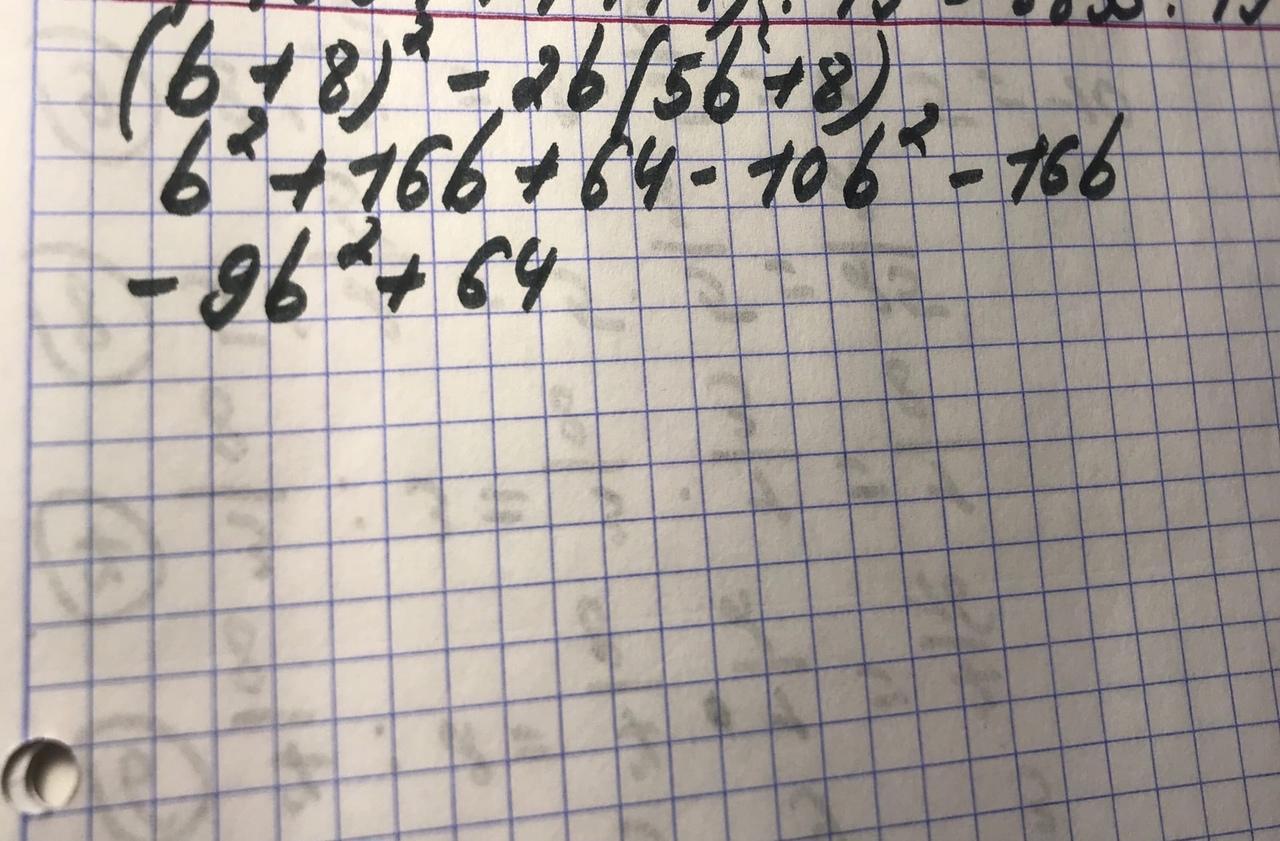 (b + 8)² - 2b(5b + 8)
b² + 16b + 64 - 10b² - 16b
- 9b² + 64